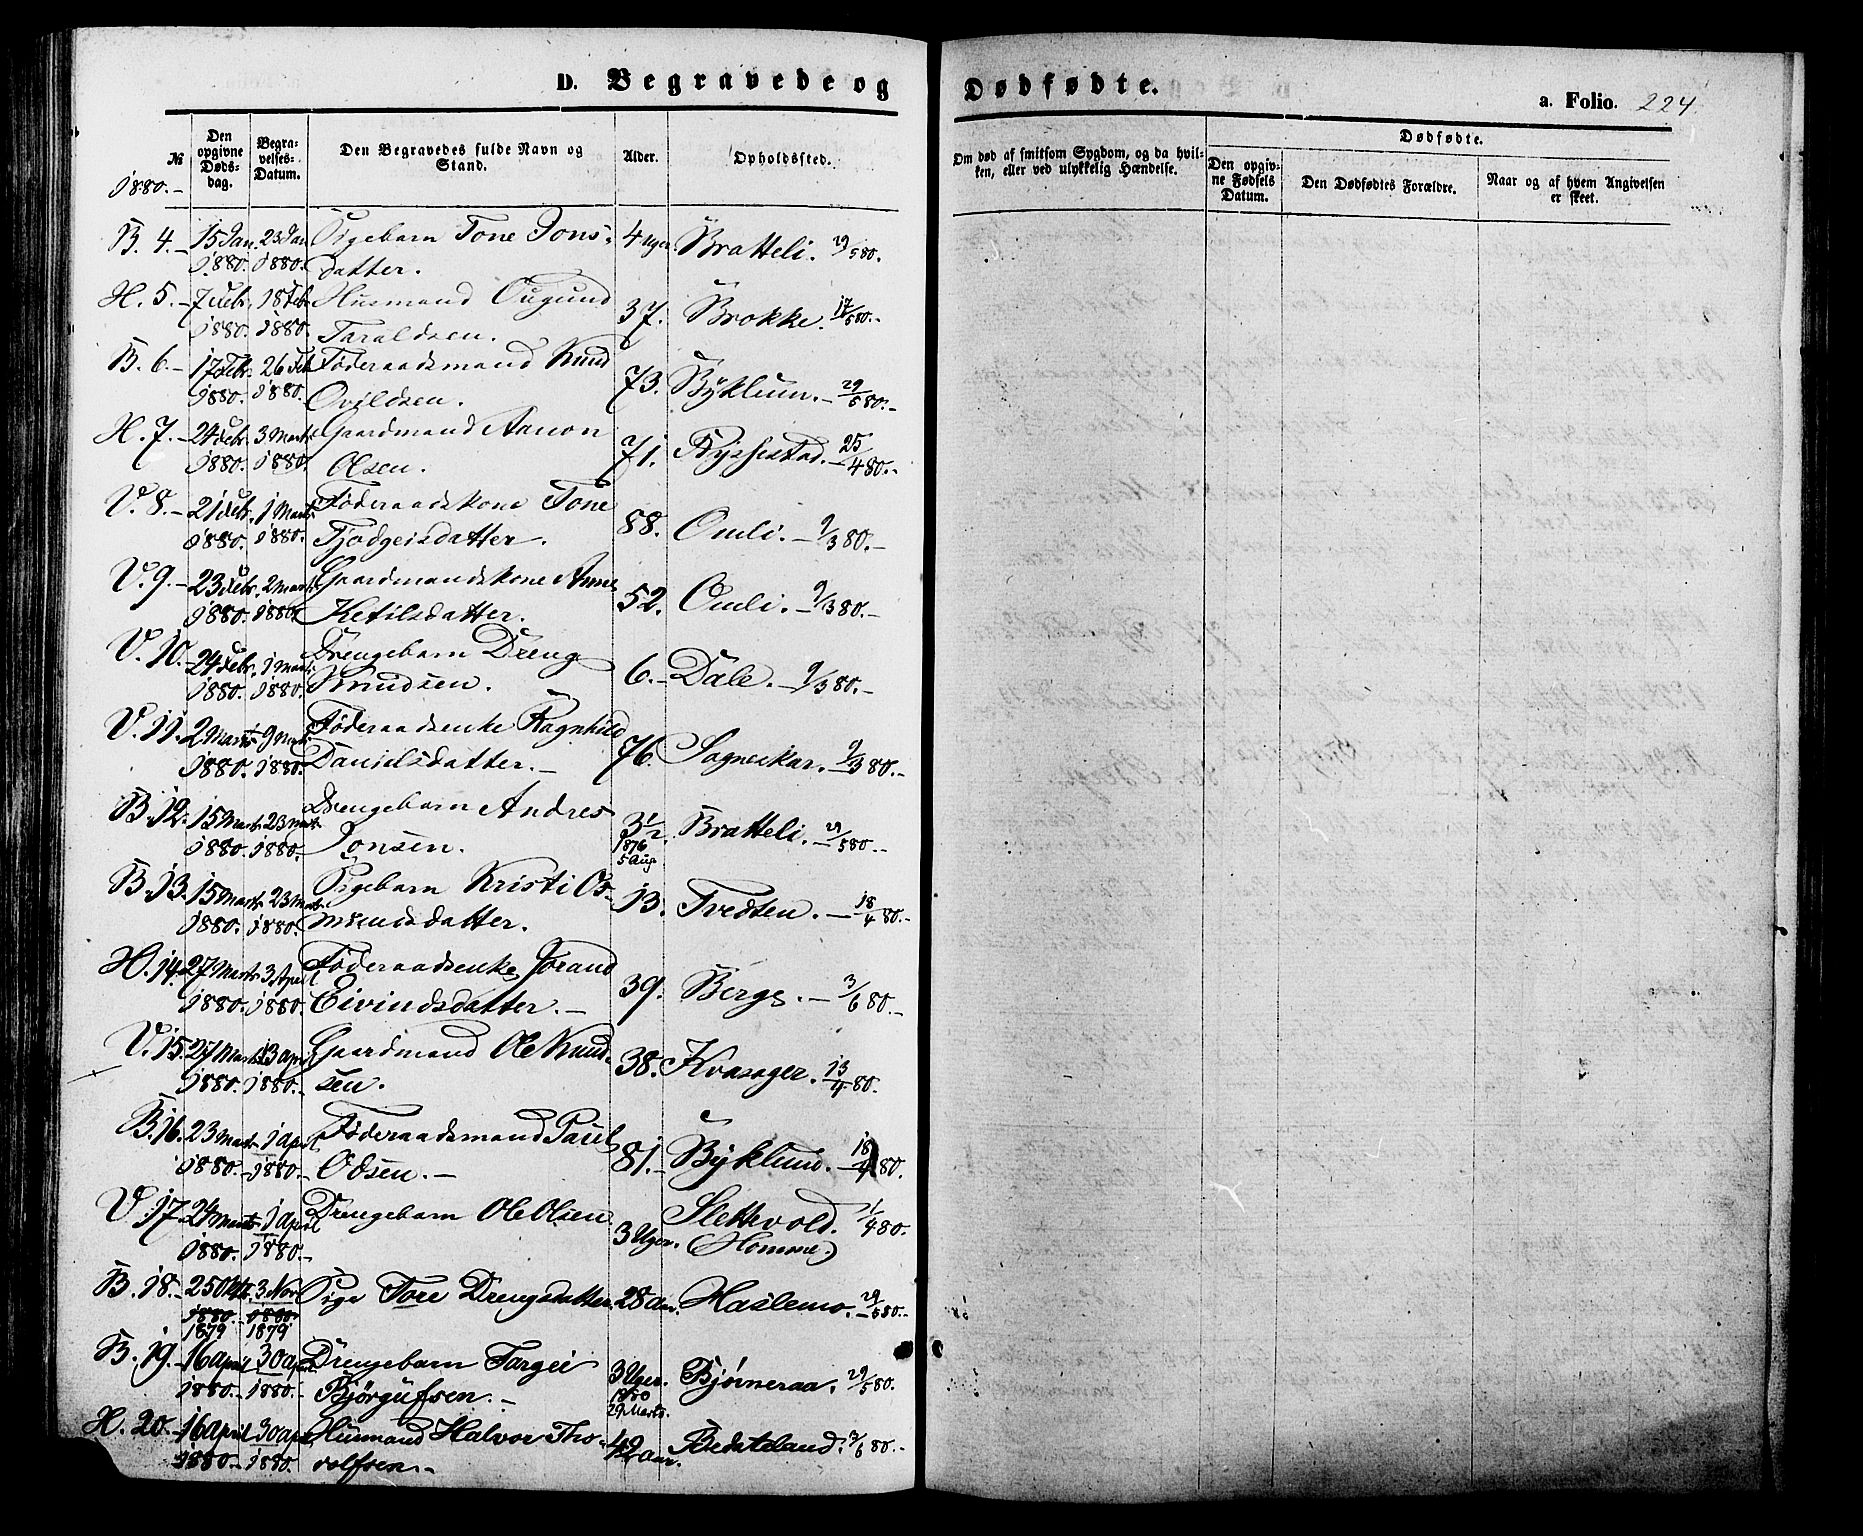 D. Begravede og Dødfødte.
a. Folio. 224.
№
Den opgivne Døds-dag.
Begra-velses-Datum.
Den Begravedes fulde Navn og Stand.
Alder.
Opholdssted.
Om død af smitsom Sygdom, og da hvil-ken, eller ved ulykkelig Hændelse.
Dødfødte.
Den opgiv-ne Fødsels Datum.
Den Dødfødtes Forældre.
Naar og af hvem Angivelsen er skeet.
1880.-
B. 4.- 15 Jan. 23 Jan Pigebarn Tone Jons- 4 Uger. Bratteli. 29/5 80.
1880. 1880. datter.
H. 5.- 7 Febr. 18 Feb Husmand Ougund 37. Brokke. 17/5 80.-
1880. 1880. Taraldsen.
B. 6.- 17 Febr. 26 Feb Føderaadsmand Knud 73. Byklum.- 29/5 80.-
1880. 1880. Ovildsen.
H. 7.- 24 Febr. 3 Marts Gaardmand Aanon 71. Rysstad.- 25/4 80.-
1880. 1880. Olsen.
V. 8.- 21 Febr. 1 Marts Føderaadskone Tone 88. Omli.- 9/3 80.-
1880. 1880. Tjodgeisdatter.
V. 9.- 23 Febr. 2 Marts Gaardmandskone Anne 52. Omli.- 9/3 80.-
1880. 1880. Ketilsdatter.
V. 10.- 24 Febr. 1 Marts Drengebarn Dreng 6.- Dale.- 9/3 80.-
1880. 1880. Knudsen.
V. 11. 2 Marts 9 Marts Føderaadsenke Ragnhild 76. Sagneskar.- 9/3 80.-
1880. 1880. Danielsdatter.-
B. 12. 15 Marts 23 Marts Drengebarn Andres 3 1/2 Bratteli.- 29/5 80.-
1880. 1880. Jonsen. 1876 5 Aug.
B. 13. 15 Marts 23 Marts Pigebarn Kristi Os- 13. Tvedten.- 18/4 80.-
1880. 1880. mundsdatter.
H. 14. 27 Marts 3 April Føderaadsenke Jorand 39. Berge.- 3/6 80.-
1880. 1880. Eivindsdatter.-
V. 15. 27 Marts 13 April Gaardmand Ole Knud- 38. Kvasager. 13/4 80.
1880. 1880. sen.
B. 16. 23 Marts 1 April Føderaadsmand Paul 81.- Byklum.- 18/4 80.
1880.- 1880.- Odsen.-
V. 17. 24 Marts 1 April Drengebarn Ole Olsen 3 Uger. Slettevold. 1/4 80.
1880. 1880.- (Homme)
B. 18.- 25 Okt. 3 Nov. Pige Tore Drengsdatter. 28 Aar. Haslemo.- 29/5 80.-
1880. 1880.
1879 1879
B. 19.- 16 April 30 April Drengebarn Targei 3 Uger. Bjørneraa. 29/5 80.
1880.- 1880.- Bjørgufsen.- 1880 29 Marts.
H. 20.- 16 April 30 April Husmand Halvor Tho- 42 Aar. Besteland. 3/6 80.-
1880.- 1880. rolfsen.-